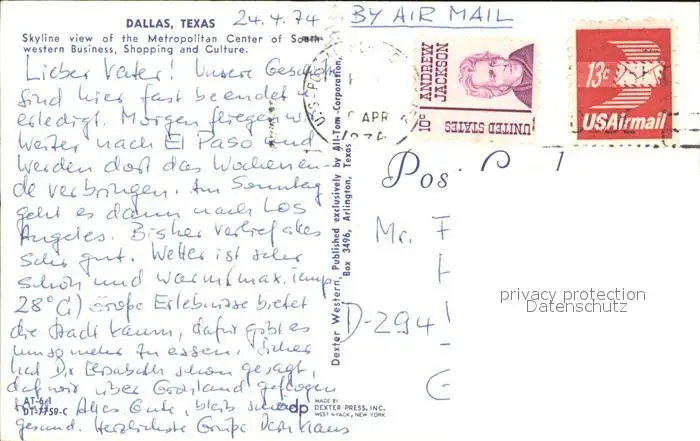 DALLAS, TEXAS
24.4.74
BY AIR MAIL
Skyline view of the Metropolitan Center of
western Business, Shopping and Culture.
Lieber Vater! Unsere
sind hier fast beendet
erledigt. Morgen fliegen wir
weiter nach El Paso und
werden dort das Wochenen-
de verbringen. Am Sonntag
geht es dann nach Los
Angeles. Bisher verlief alles
sehr gut. Wetter ist sehr
schön und warm (max. temp
28°C) große Erlebnisse bietet
die Stadt kaum, dafür gibt es
umso mehr zu essen. Sicher
hat Dir Elisabeth schon gesagt,
daß wir über Grönland geflogen
Alles Gute, bleib
gesund. Herzlichste Grüße Dein Klaus
AT-6-1
DT-7759-C
dp
MADE BY
DEXTER PRESS, INC.
WEST NYACK, NEW YORK
Dexter Western, Published exclusively by All-Tom Corporation,
Box 3496, Arlington, Texas
APR
1974
ANDREW
JACKSON
10c
UNITED STATES
13c
USAirmail
Pos
Mr. F
H
D-294
G
privacy protection
Datenschutz